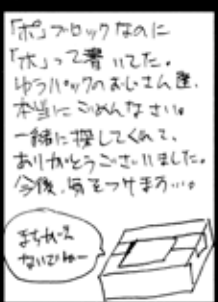 「ポ」ブロックなのに
「ホ」って書いてた。
ゆうパックのおじさん達、
本当にごめんなさい。
一緒に探してくれて、
ありがとうございました。
今後、気をつけます…。
まちがえ
ないでねー